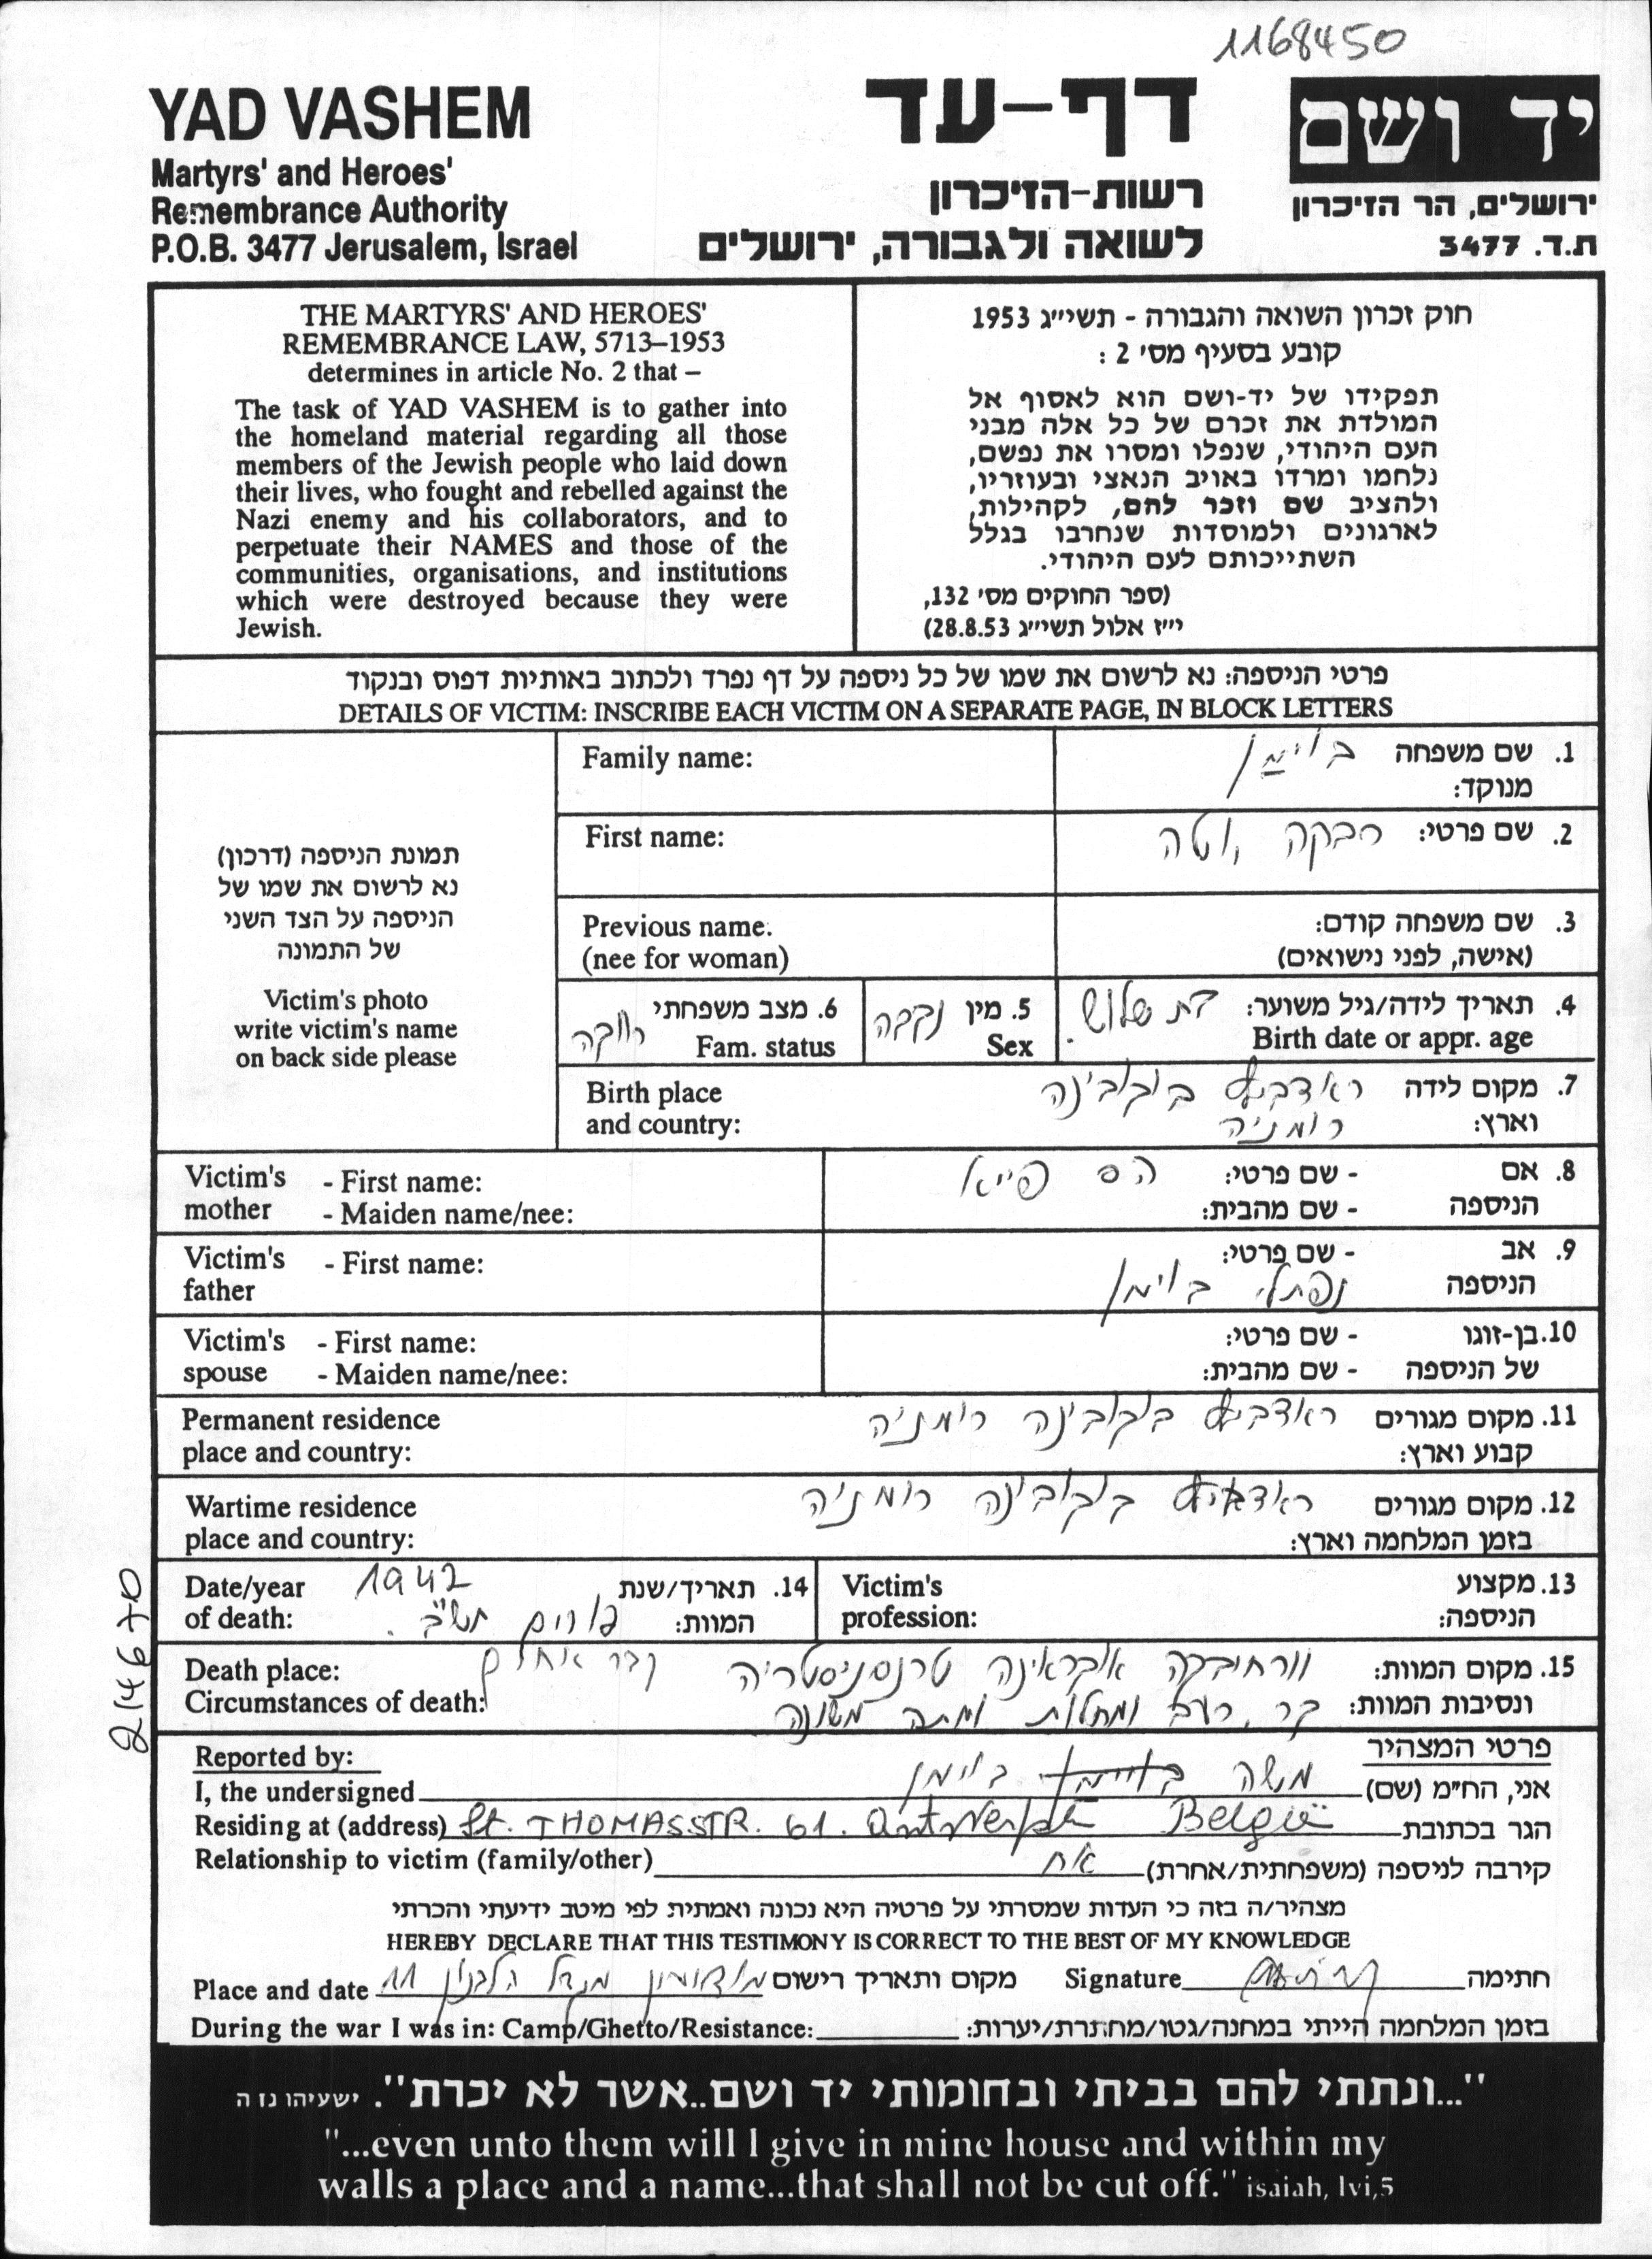 1168450
YAD VASHEM
Martyrs' and Heroes'
Remembrance Authority
P.O.B. 3477 Jerusalem, Israel
דף-עד
רשות-הזיכרון
לשואה ולגבורה, ירושלים
יד ושם
ירושלים, הר הזיכרון
ת.ד. 3477
THE MARTYRS' AND HEROES'
REMEMBRANCE LAW, 5713–1953
determines in article No. 2 that –
The task of YAD VASHEM is to gather into
the homeland material regarding all those
members of the Jewish people who laid down
their lives, who fought and rebelled against the
Nazi enemy and his collaborators, and to
perpetuate their NAMES and those of the
communities, organisations, and institutions
which were destroyed because they were
Jewish.
חוק זכרון השואה והגבורה - תשי״ג 1953
קובע בסעיף מס׳ 2 :
תפקידו של יד-ושם הוא לאסוף אל
המולדת את זכרם של כל אלה מבני
העם היהודי, שנפלו ומסרו את נפשם,
נלחמו ומרדו באויב הנאצי ובעוזריו,
ולהציב שם וזכר להם, לקהילות,
לארגונים ולמוסדות שנחרבו בגלל
השתייכותם לעם היהודי.
(ספר החוקים מס׳ 132,
י״ז אלול תשי״ג 28.8.53)
פרטי הניספה: נא לרשום את שמו של כל ניספה על דף נפרד ולכתוב באותיות דפוס ובנקוד
DETAILS OF VICTIM: INSCRIBE EACH VICTIM ON A SEPARATE PAGE, IN BLOCK LETTERS
תמונת הניספה (דרכון)
נא לרשום את שמו של
הניספה על הצד השני
של התמונה
Victim's photo
write victim's name
on back side please
Family name:
1. שם משפחה בוימן
מנוקד:
First name:
2. שם פרטי: רבקה, וטה
Previous name.
(nee for woman)
3. שם משפחה קודם:
(אישה, לפני נישואים)
4. תאריך לידה/גיל משוער: בת שלוש.
Birth date or appr. age
5. מין נקבה
Sex
6. מצב משפחתי רווקה
Fam. status
Birth place
and country:
7. מקום לידה ראדביץ בוקובינה
וארץ: רומניה
Victim's mother - First name:
- Maiden name/nee:
8. אם הניספה - שם פרטי: הס פייא
- שם מהבית:
Victim's father - First name:
9. אב הניספה - שם פרטי:
נפתלי בוימן
Victim's spouse - First name:
- Maiden name/nee:
10. בן-זוגו של הניספה - שם פרטי:
- שם מהבית:
Permanent residence
place and country:
11. מקום מגורים ראדביץ בוקובינה רומניה
קבוע וארץ:
Wartime residence
place and country:
12. מקום מגורים ראדביץ בוקובינה רומניה
בזמן המלחמה וארץ:
Date/year
of death:
14. תאריך/שנת 1942
המוות: פורים תש"ב.
Victim's
profession:
13. מקצוע
הניספה:
Death place:
Circumstances of death:
15. מקום המוות: וורחיבקה אוקראינה טרנסניסטריה קבר אחים
ונסיבות המוות: קר, רעב ומחלות ומתה משונה
214670
Reported by:
פרטי המצהיר
I, the undersigned
אני, הח״מ (שם) משה בוימן בוימן
Residing at (address) St. THOMASSTR. 61. Antwerpen België הגר בכתובת
Relationship to victim (family/other) אח קירבה לניספה (משפחתית/אחרת)
מצהיר/ה בזה כי העדות שמסרתי על פרטיה היא נכונה ואמתית לפי מיטב ידיעתי והכרתי
HEREBY DECLARE THAT THIS TESTIMONY IS CORRECT TO THE BEST OF MY KNOWLEDGE
Place and date 11 מקום ותאריך רישום
Signature חתימה
During the war I was in: Camp/Ghetto/Resistance: בזמן המלחמה הייתי במחנה/גטו/מחתרת/יערות:
"...ונתתי להם בביתי ובחומותי יד ושם..אשר לא יכרת". ישעיהו נו ה
"...even unto them will I give in mine house and within my
walls a place and a name...that shall not be cut off." isaiah, lvi,5